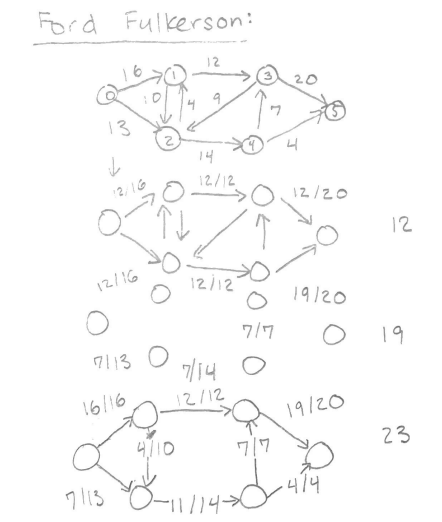 Ford Fulkerson:
16 12 20
0 1 3 5
10 4 9 7
13 2 4
14 4
12/16 12/12 12/20
12
12/16 12/12 19/20
7/7 19
7/13 7/14
16/16 12/12 19/20
4/10 7/7 23
7/13 11/14 4/4